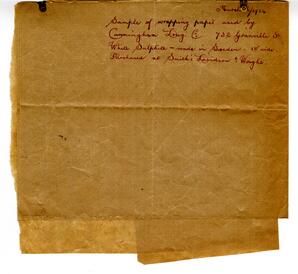 Sample of wrapping paper used by
Cunningham Drug Co. 730 Granville St.
White Sulphite - made in Sweden - 18" wide.
Purchased at Smith, Davidson & Wright